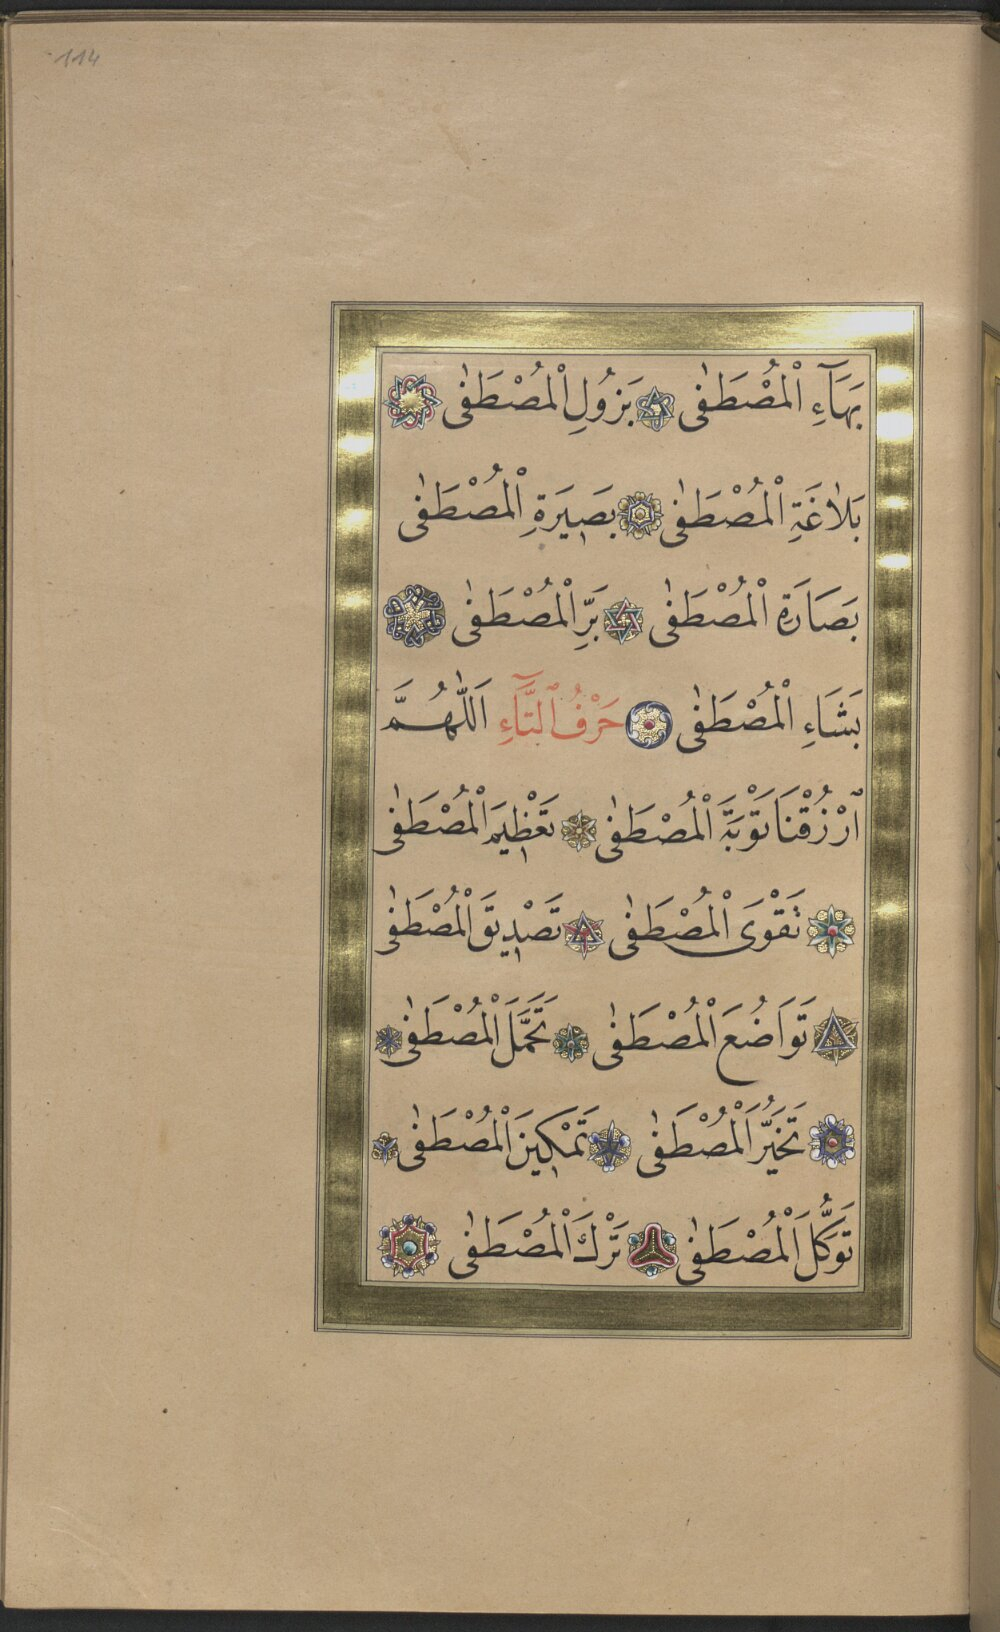 114
بَهَآءِ الْمُصْطَفٰى بَزُولِ الْمُصْطَفٰى
بَلَاغَةِ الْمُصْطَفٰى بَصِيَرةِ الْمُصْطَفٰى
بَصَارَةِ الْمُصْطَفٰى بَرِّ الْمُصْطَفٰى
بَشَاءِ الْمُصْطَفٰى حَرْفُ التَّآءِ اَللّٰهُمَّ
ارْزُقْنَا تَوْبَةَ الْمُصْطَفٰى تَعْظِيمَ الْمُصْطَفٰى
تَقْوَى الْمُصْطَفٰى تَصْدِيقَ الْمُصْطَفٰى
تَوَاضُعَ الْمُصْطَفٰى تَحَمَّلَ الْمُصْطَفٰى
تَخَيَّرُ الْمُصْطَفٰى تَمْكِينَ الْمُصْطَفٰى
تَوَكُّلَ الْمُصْطَفٰى تَرْكَ الْمُصْطَفٰى